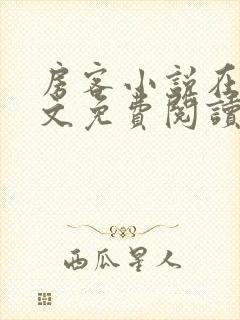 房客小説在
文免費閱讀
西瓜星人